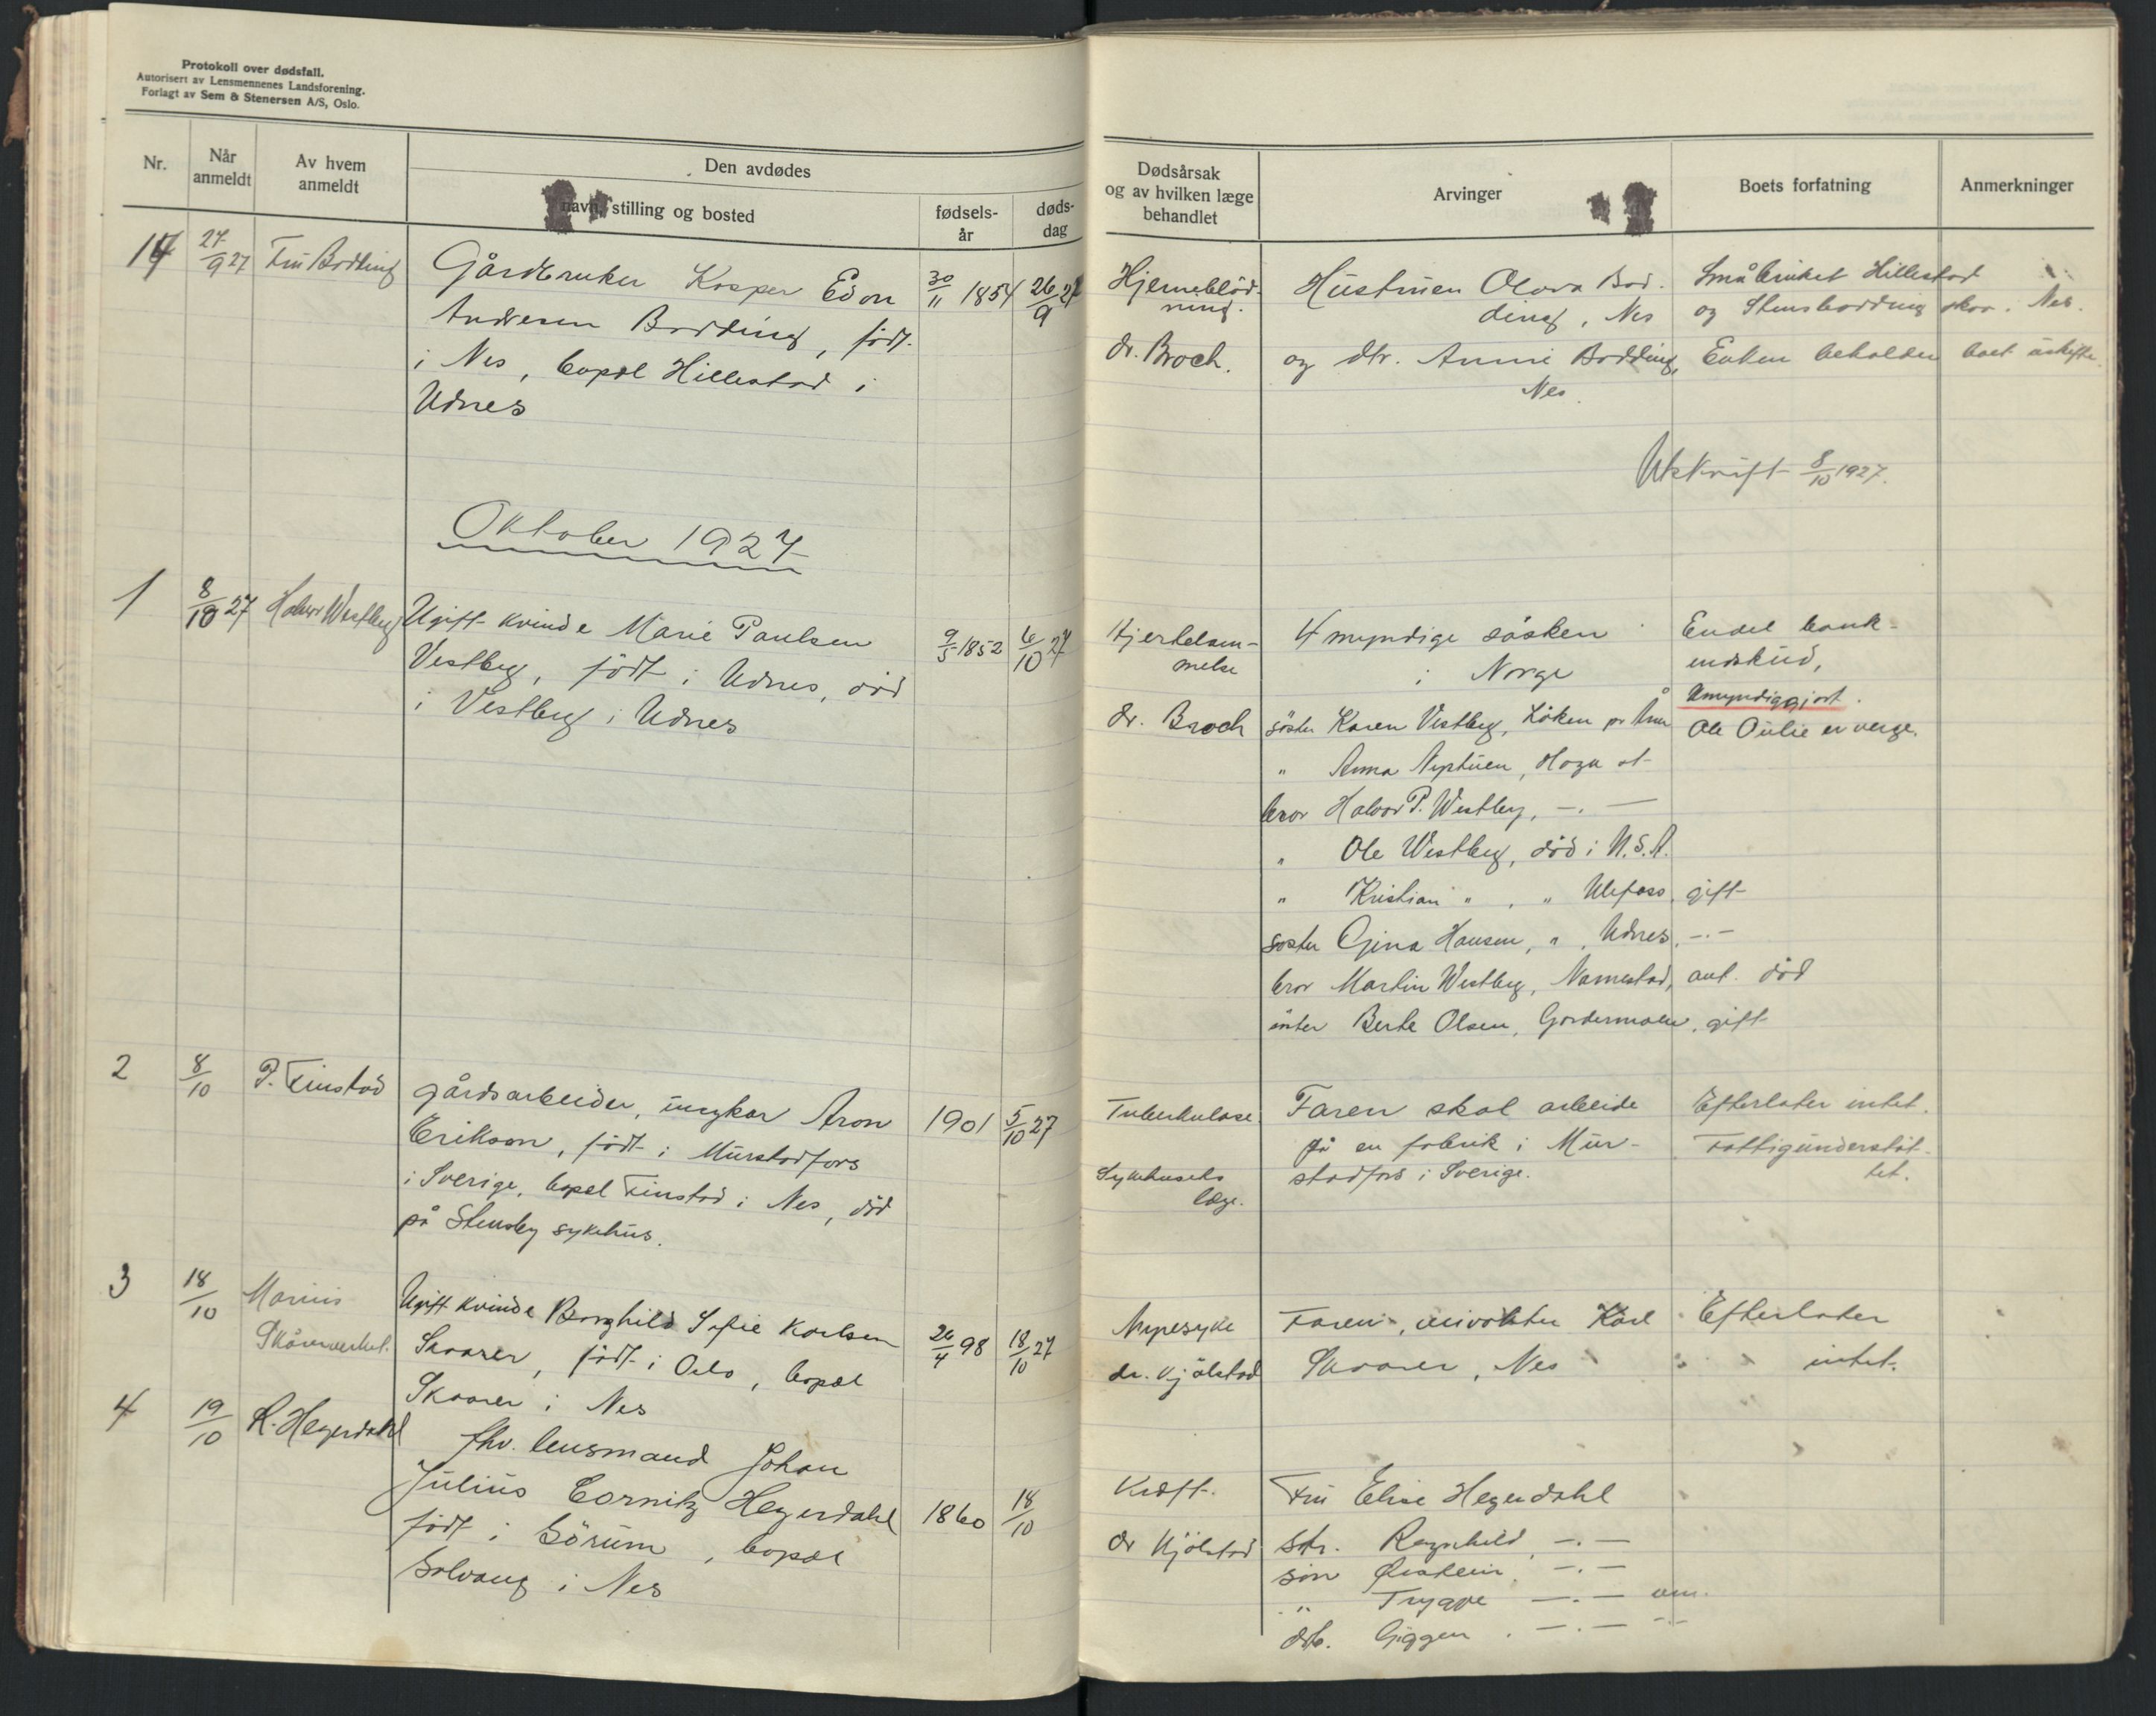 Protokoll over dødsfall.
Autorisert av Lensmennenes Landsforening.
Forlagt av Sem & Stenersen A/S, Oslo.
Nr.
Når anmeldt
Av hvem anmeldt
Den avdødes
navn, stilling og bosted
fødsels-år
døds-dag
Dødsårsak
og av hvilken læge
behandlet
Arvinger
Boets forfatning
Anmerkninger
14 27/9 27 Fru Bodding
Gårdbruker Kasper Edon
Andresen Bodding, født
i Nes, bopæl Hillestad i
Udnes
30/11 1854 26/9 27
Hjerneblød-
ning.
dr. Broch.
Hustruen Olava Bod-
ding, Nes
og dtr. Anni Bodding,
Nes.
Småbruket Hillestad
og Stensbodding skou. Nes.
Enken beholder boet uskiftet.
Utskrift 8/10 1927.
Oktober 1927
1 8/10 27 Halvor Westbey
Ugift kvinde Marie Paulsen
Vestbey, født i Udnes, død
i Vestbey i Udnes
9/5 1852 6/10 27
Hjertelam-
melse
dr. Broch
4 myndige søsken
i Norge
søster Karen Vestbey, Løken pr Årnes
" Anna Neptuen, Haga st
bror Halvor P. Westbey, -.-
" Ole Westbey, død i U.S.A.
" Kristian " , " Ulefoss, gift
søster Gina Hansen, " , Udnes, -.-
bror Martin Westbey, Namestad, ant. død
Berte Olsen, Gardermoen, gift
Endel bank-
indskud,
Umyndiggjort.
Ole Oulie er verge.
2 8/10 P. Finstad
gårdsarbeider, ungkar Aron
Erikson, født i Murstadfors
i Sverige, bopæl Finstad i Nes, død
på Stensby sykehus.
1901 5/10 27
Tuberkulose
Sykehusets
læge.
Faren skal arbeide
på en fabrik i Mur-
stadfors i Sverige.
Efterlater intet.
Fattigunderstøt-
tet.
3 18/10 Marius
Skårerverket.
Ugift kvinde Borghild Sofie Karlsen
Skaarer, født i Oslo, bopæl
Skaarer i Nes
26/4 98 18/10 27
Nyresyke
dr. Kjølstad
Faren, Karl
Skaarer, Nes
Efterlater
intet.
4 19/10 R. Hegerdahl
fhv. lensmand Johan
Julius Cornitz Hegerdahl
født i Sørum, bopæl
Solvang i Nes
1860 18/10
Kræft.
dr Kjølstad
Fru Elise Hegerdahl
dtr. Ragnhild, -.-
søn Øistein, -.-
" Trygve -.- um.
dtr. Giggen . -.- -"-